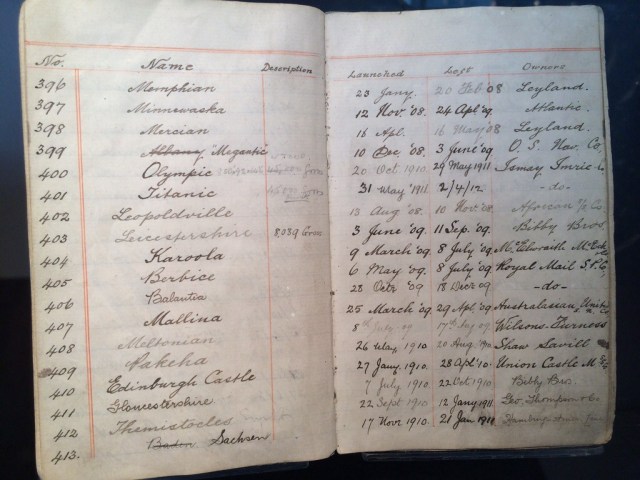 No. Name Description
396 Memphian
397 Minnewaska
398 Mercian
399 Albany Megantic
400 Olympic Gross
401 Titanic Gross
402 Leopoldville
403 Leicestershire 8,039 Gross
404 Karoola
405 Berbice
406 Balantia
407 Mallina
408 Meltonian
409 Pakeha
410 Edinburgh Castle
411 Gloucestershire
412 Themistocles
413. Baden Sachsen
Launched Left Owners
23 Jany. 20 Feb '08 Leyland.
12 Nov. '08. 24 Apl '09 Atlantic.
Apl. 16 May '08 Leyland.
10 Dec '08. 3 June '09 O. S. Nav. Co
20 Oct 1910 29 May 1911 Ismay Imrie
31 May 1911 2/4/12 -do-
13 Aug '08. 10 Nov. '08. African Co
3 June '09. 11 Sep. '09. Bibby Bros.
9 March '09. 8 July '09.
6 May '09. 8 July '09. Royal Mail S.P. Co
28 Octr '09 18 Decr 09 -do-
25 March '09. 29 Apl. '09. Australasian United
8th July 09 17th Sep 09 Wilsons-Furness
26 May 1910 20 Aug. 1910 Shaw Savill
27 Jany. 1910. 28 Apl '10 Union Castle M.
7 July 1910. 22 Oct 1910 Bibby Bro.
22 Sept 1910 12 Jany 1911 Geo. Thompson & Co.
17 Novr 1910. 21 Jan 1911 Hamburg